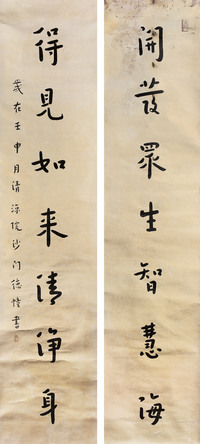 開發眾生智慧海
得見如來清淨身
歲在壬申月清涼院沙門德幢書